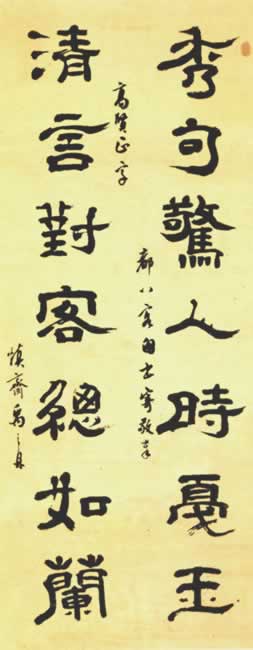 秀句驚人時戛玉
高賢正字
清言對客總如蘭
慎齋禹之鼎